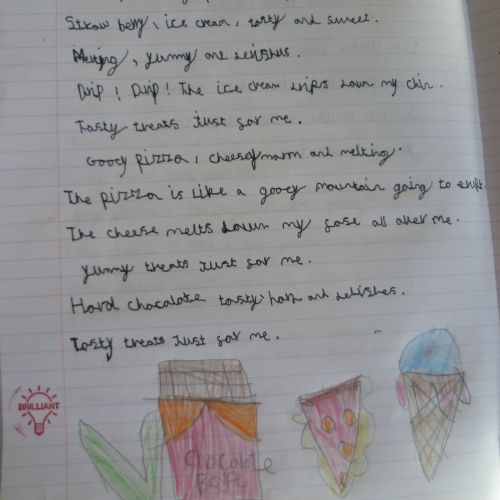 Straw belly, ice cream, tasty and sweet.
Melting, yummy and delishes.
Drip! Drip! The ice cream drips down my chin.
Tasty treats just for me.
Gooey pizza, cheesey warm and melting.
The pizza is like a gooey mountain going to erupt.
The cheese melts down my fase all over me.
yummy treats Just for me.
Hard chocolate tasty and delishes.
Tasty treats Just for me.
BRILLIANT
Chocolate